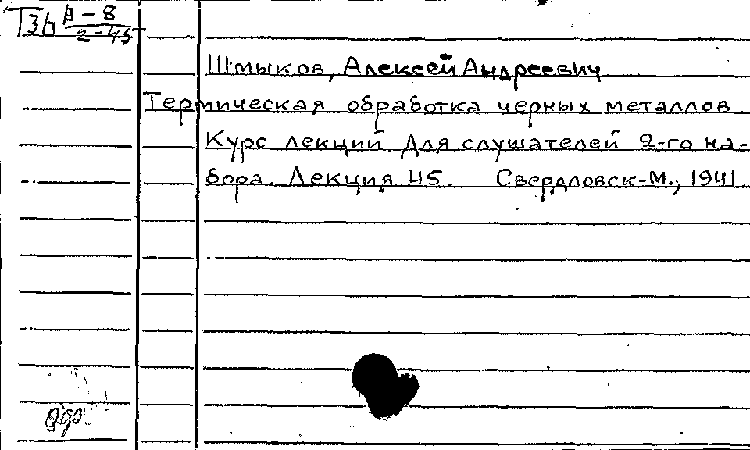 Т36 В-8
2-45
Шмыков, Алексей Андреевич
Термическая обработка черных металлов
Курс лекций для слушателей 2-го на-
бора. Лекция 45. Свердловск-М., 1941